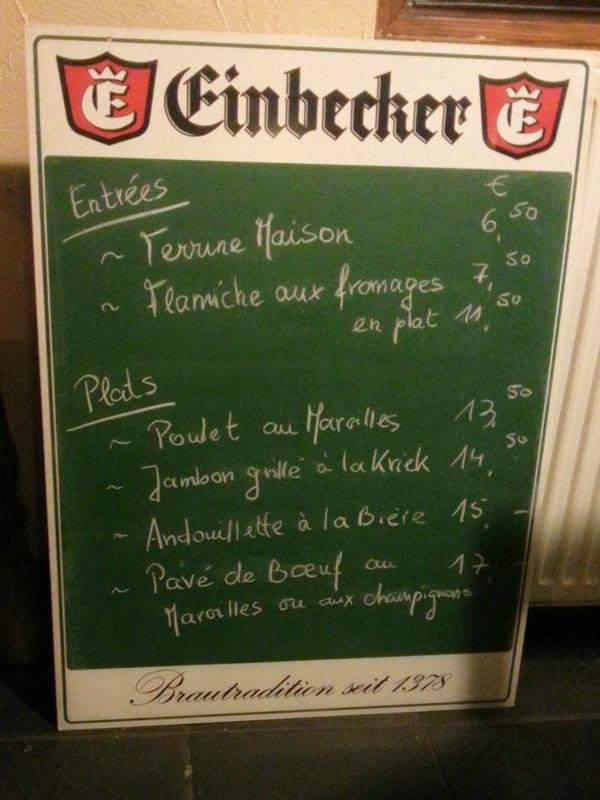 E Einbecker E
Entrées €
~ Terrine Maison 6,50
~ Flamiche aux fromages 7,50
en plat 11,50
Plats
~ Poulet au Maroilles 13,50
~ Jambon grillé à la Kriek 14,50
~ Andouillette à la Bière 15,-
~ Pavé de Bœuf au 17,-
Maroilles ou aux champignons
Brautradition seit 1378